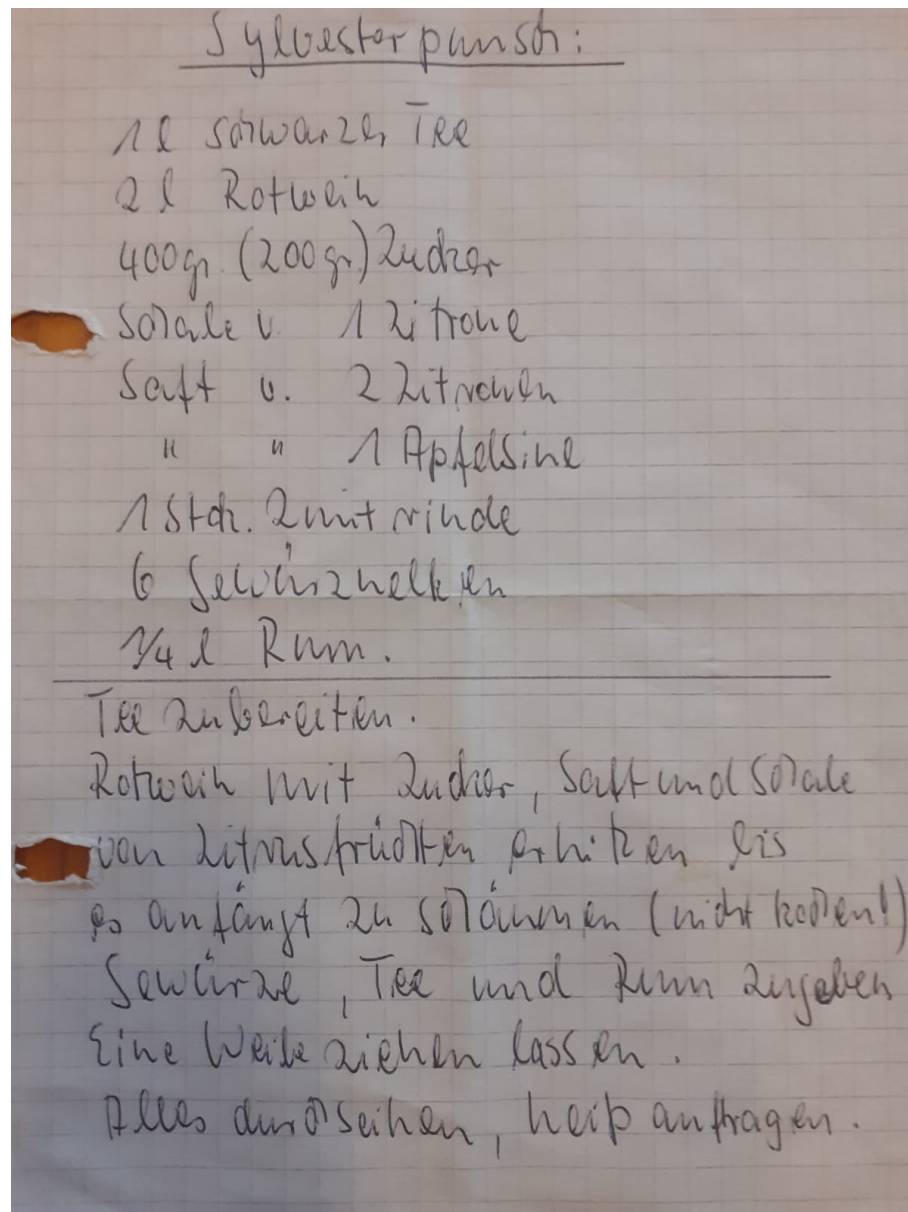 Sylvesterpunsch:
1 l schwarzer Tee
2 l Rotwein
400gr. (200gr.) Zucker
Schale v. 1 Zitrone
Saft v. 2 Zitronen
" " 1 Apfelsine
1 Stch. Zimtrinde
6 Gewürznelken
1/4 l Rum.
Tee zubereiten.
Rotwein mit Zucker, Saft und Schale
von Zitrusfrüchten erhitzen bis
es anfängt zu schäumen (nicht kochen!)
Gewürze, Tee und Rum zugeben
Eine Weile ziehen lassen.
Alles durchseihen, heiß auftragen.